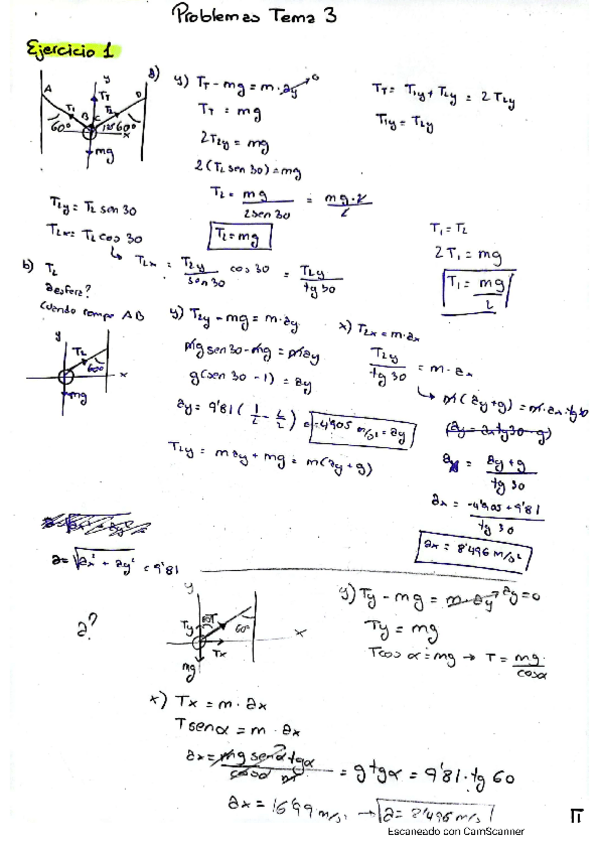 Problemas Tema 3
Ejercicio 1
a)
A B C D y x
T1 TT T2
60º 60º
mg
y) TT - mg = m·ay 0
TT = mg
2T2y = mg
2(T2 sen 30) = mg
T2 = mg / 2sen30 = mg·2 / 2
T2 = mg
TT = T1y + T2y = 2T2y
T1y = T2y
T1y = T2 sen 30
T2x = T2 cos 30
↳ T2x = T2y / sen30 cos 30 = T2y / tg 30
T1 = T2
2T1 = mg
T1 = mg / 2
b) T2
aesfera?
Cuando rompe AB
y x T2 60º mg
y) T2y - mg = m·ay
mg sen30 - mg = m ay
g(sen 30 - 1) = ay
ay = 9'81 (1/2 - 2/2) = -4'905 m/s² = ay
T2y = m ay + mg = m(ay + g)
x) T2x = m·ax
T2y / tg 30 = m·ax
↳ m(ay+g) = m·ax·tg30
(ay = ax tg30 - g)
ax = ay + g / tg 30
ax = -4'905 + 9'81 / tg 30
ax = 8'496 m/s²
a = √ax² + ay² = 9'81
a?
y x Ty T Tx 60º mg
y) Ty - mg = m·ay ay=0
Ty = mg
T cos α = mg → T = mg / cosα
x) Tx = m·ax
T sen α = m·ax
= g tg α = 9'81·tg 60
ax = 16'99 m/s² → a = 8'496 m/s²
π
Escaneado con CamScanner